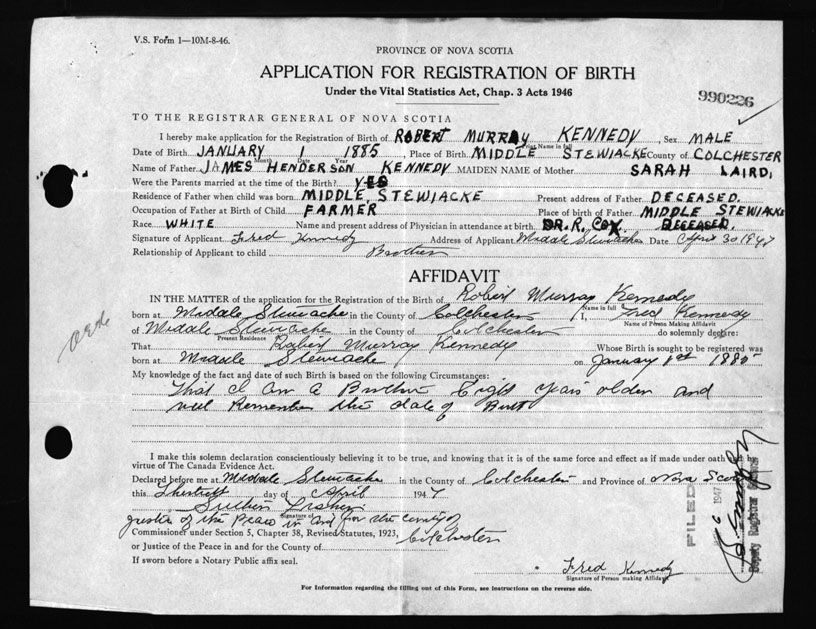 V.S. Form 1—10M-8-46.
PROVINCE OF NOVA SCOTIA
APPLICATION FOR REGISTRATION OF BIRTH
Under the Vital Statistics Act, Chap. 3 Acts 1946
990226
TO THE REGISTRAR GENERAL OF NOVA SCOTIA
I hereby make application for the Registration of Birth of ROBERT MURRAY KENNEDY, Sex MALE
Print Name in full
Date of Birth JANUARY 1 1885, Place of Birth MIDDLE STEWIACKE County of COLCHESTER
Month Date Year
Name of Father JAMES HENDERSON KENNEDY MAIDEN NAME of Mother SARAH LAIRD,
Were the Parents married at the time of the Birth? YES
Residence of Father when child was born MIDDLE, STEWIACKE Present address of Father DECEASED.
Occupation of Father at Birth of Child FARMER Place of birth of Father MIDDLE STEWIACKE
Race WHITE Name and present address of Physician in attendance at birth DR. R. COX. DECEASED.
Signature of Applicant Fred Kennedy Address of Applicant Middle Stewiacke Date April 30 1947
Relationship of Applicant to child Brother
AFFIDAVIT
IN THE MATTER of the application for the Registration of the Birth of Robert Murray Kennedy
Name in full
born at Middle Stewiacke in the County of Colchester I, Fred Kennedy
Name of Person Making Affidavit
of Middle Stewiacke in the County of Colchester do solemnly declare:
Present Residence
That Robert Murray Kennedy Whose Birth is sought to be registered was
born at Middle Stewiacke on January 1st 1885
My knowledge of the fact and date of such Birth is based on the following Circumstances:
That I am a Brother Eight years older and
well Remember the date of Birth
I make this solemn declaration conscientiously believing it to be true, and knowing that it is of the same force and effect as if made under oath by
virtue of The Canada Evidence Act.
Declared before me at Middle Stewiacke in the County of Colchester and Province of Nova Scotia
this Thirtieth day of April 1947
Signature of
Justice of the Peace in and for the County of
Commissioner under Section 5, Chapter 38, Revised Statutes, 1923, Colchester
or Justice of the Peace in and for the County of
If sworn before a Notary Public affix seal.
Fred Kennedy
Signature of Person making Affidavit
For Information regarding the filling out of this Form, see Instructions on the reverse side.
FILED
6 1947
Deputy Registrar General